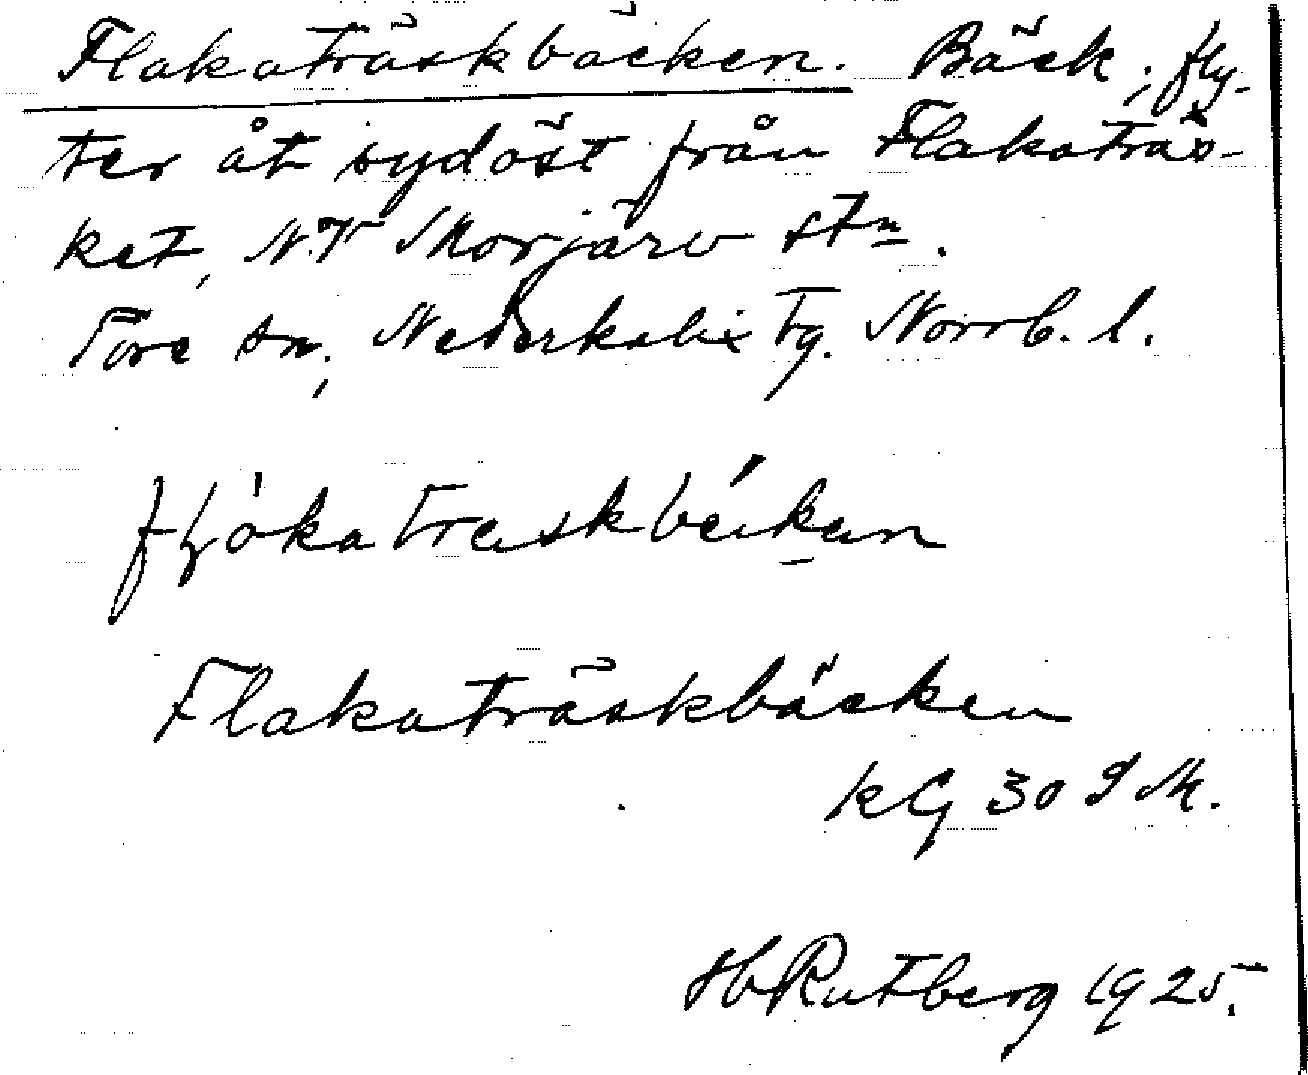 Flakaträskbäcken. Bäck, fly-
ter åt sydöst från Flakaträs-
ket, N.V Morjärv stn.
Töre sn, Nederkalix tg. Norrb. l.
Flakaträskbäcken
KG 30 J M.
Hb Rutberg 1925.